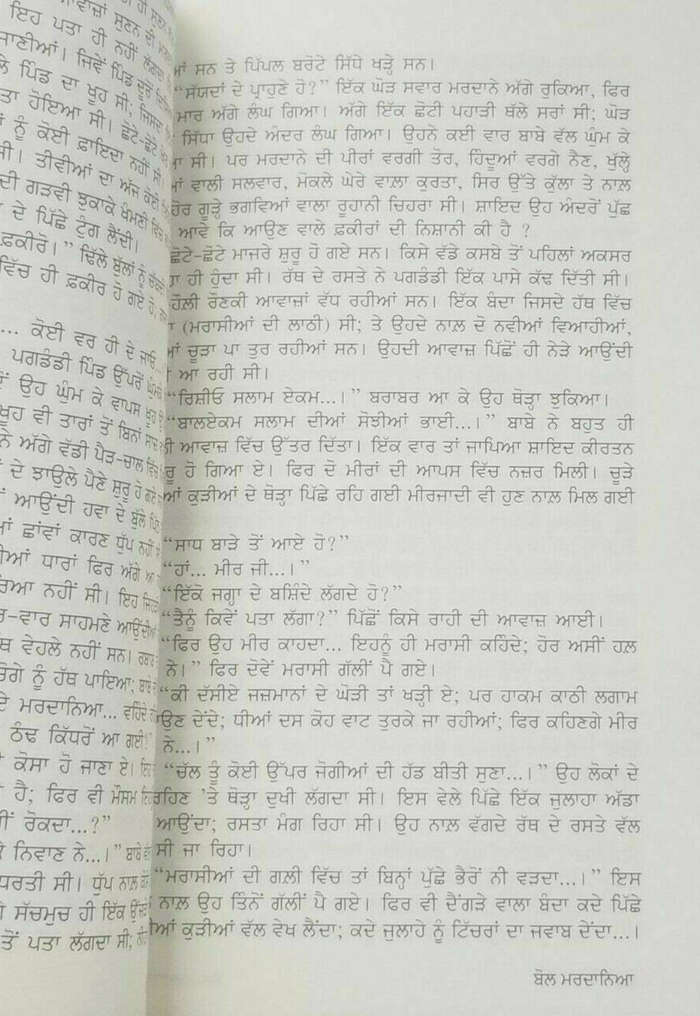 ਇਹ ਪਤਾ ਹੀ ਨਹੀਂ ਲੱਗਦਾ
ਜਾਣੀਆਂ। ਜਿਵੇਂ ਪਿੰਡ ਦੂਰੋਂ
ਪਿੰਡ ਦਾ ਖੂਹ ਸੀ; ਜਿਸਦਾ
ਹੋਇਆ ਸੀ। ਛੋਟੇ-ਛੋਟੇ
ਨੂੰ ਕੋਈ ਫ਼ਾਇਦਾ ਨਹੀਂ ਸੀ।
ਸੀ। ਤੀਵੀਆਂ ਦਾ ਅੱਜ ਕੋਈ
ਦੀ ਗੜਵੀ ਝੁਕਾਕੇ ਖੰਮਣੀ ਵਿੱਚ
ਦੇ ਪਿੱਛੇ ਟੁੰਗ ਲੈਂਦੀ।
ਫ਼ਕੀਰੋ।” ਢਿੱਲੇ ਬੁੱਲਾਂ ਨੂੰ
ਵਿੱਚ ਹੀ ਫ਼ਕੀਰ ਹੋ ਗਏ ਹੋ,
... ਕੋਈ ਵਰ ਹੀ ਦੇ ਜਾਓ...
ਪਗਡੰਡੀ ਪਿੰਡ ਉੱਪਰੋਂ ਘੁੰਮਕੇ
ਉਹ ਘੁੰਮ ਕੇ ਵਾਪਸ ਖੂਹ
ਖੂਹ ਵੀ ਤਾਰਾਂ ਤੋਂ ਬਿਨਾਂ ਸਾਜ਼
ਨੇ ਅੱਗੇ ਵੱਡੀ ਪੈੜ-ਚਾਲ ਵਿੱਚ
ਦੇ ਝਾਉਲੇ ਪੈਣੇ ਸ਼ੁਰੂ ਹੋ ਗਏ
ਆਉਂਦੀ ਹਵਾ ਦੇ ਬੁੱਲੇ
ਛਾਂਵਾਂ ਕਾਰਣ ਧੁੱਪ ਨਹੀਂ
ਧਾਰਾਂ ਫਿਰ ਅੱਗੇ ਆ
ਨਹੀਂ ਸੀ। ਇਹ
ਸਾਹਮਣੇ ਆਉਂਦੀਆਂ
ਵੇਹਲੇ ਨਹੀਂ ਸਨ।
ਨੂੰ ਹੱਥ ਪਾਇਆ; ਬਾਬੇ
ਦੇ ਮਰਦਾਨਿਆ... ਵਹਿੰਦੇ
ਠੰਢ ਕਿੱਧਰੋਂ ਆ ਗਈ?”
ਕੋਸਾ ਹੋ ਜਾਣਾ ਏ।
ਹੈ; ਫਿਰ ਵੀ ਮੌਸਮ
ਰੋਕਦਾ...?”
ਨਿਵਾਣ ਨੇ...।” ਬਾਬੇ
ਧਰਤੀ ਸੀ। ਧੁੱਪ ਨਾਲ
ਸੱਚਮੁਚ ਹੀ ਇੱਕ
ਤੋਂ ਪਤਾ ਲੱਗਦਾ ਸੀ;
ਸਨ ਤੇ ਪਿੱਪਲ ਬਰੋਟੇ ਸਿੱਧੇ ਖੜ੍ਹੇ ਸਨ।
“ਸੱਯਦਾਂ ਦੇ ਪ੍ਰਾਹੁਣੇ ਹੋ?” ਇੱਕ ਘੋੜ ਸਵਾਰ ਮਰਦਾਨੇ ਅੱਗੇ ਰੁਕਿਆ, ਫਿਰ
ਮਾਰ ਅੱਗੇ ਲੰਘ ਗਿਆ। ਅੱਗੇ ਇੱਕ ਛੋਟੀ ਪਹਾੜੀ ਥੱਲੇ ਸਰਾਂ ਸੀ; ਘੋੜ
ਸਿੱਧਾ ਉਹਦੇ ਅੰਦਰ ਲੰਘ ਗਿਆ। ਉਹਨੇ ਕਈ ਵਾਰ ਬਾਬੇ ਵੱਲ ਘੁੰਮ ਕੇ
ਸੀ। ਪਰ ਮਰਦਾਨੇ ਦੀ ਪੀਰਾਂ ਵਰਗੀ ਤੋਰ, ਹਿੰਦੂਆਂ ਵਰਗੇ ਨੈਣ, ਖੁੱਲ੍ਹੇ
ਵਾਲੀ ਸਲਵਾਰ, ਮੋਕਲੇ ਘੇਰੇ ਵਾਲ਼ਾ ਕੁਰਤਾ, ਸਿਰ ਉੱਤੇ ਕੁੱਲਾ ਤੇ ਨਾਲ਼
ਹੋਰ ਗੂੜ੍ਹੇ ਭਗਵਿਆਂ ਵਾਲਾ ਰੂਹਾਨੀ ਚਿਹਰਾ ਸੀ। ਸ਼ਾਇਦ ਉਹ ਅੰਦਰੋਂ ਪੁੱਛ
ਆਵੇ ਕਿ ਆਉਣ ਵਾਲੇ ਫ਼ਕੀਰਾਂ ਦੀ ਨਿਸ਼ਾਨੀ ਕੀ ਹੈ ?
ਛੋਟੇ-ਛੋਟੇ ਮਾਜਰੇ ਸ਼ੁਰੂ ਹੋ ਗਏ ਸਨ। ਕਿਸੇ ਵੱਡੇ ਕਸਬੇ ਤੋਂ ਪਹਿਲਾਂ ਅਕਸਰ
ਹੀ ਹੁੰਦਾ ਸੀ। ਰੱਥ ਦੇ ਰਸਤੇ ਨੇ ਪਗਡੰਡੀ ਇੱਕ ਪਾਸੇ ਕੱਢ ਦਿੱਤੀ ਸੀ।
ਹੌਲ਼ੀ ਰੌਣਕੀ ਆਵਾਜ਼ਾਂ ਵੱਧ ਰਹੀਆਂ ਸਨ। ਇੱਕ ਬੰਦਾ ਜਿਸਦੇ ਹੱਥ ਵਿੱਚ
(ਮਰਾਸੀਆਂ ਦੀ ਲਾਠੀ) ਸੀ; ਤੇ ਉਹਦੇ ਨਾਲ਼ ਦੋ ਨਵੀਆਂ ਵਿਆਹੀਆਂ,
ਚੂੜਾ ਪਾ ਤੁਰ ਰਹੀਆਂ ਸਨ। ਉਹਦੀ ਆਵਾਜ਼ ਪਿੱਛੋਂ ਹੀ ਨੇੜੇ ਆਉਂਦੀ
ਆ ਰਹੀ ਸੀ।
“ਰਿਸ਼ੀਓ ਸਲਾਮ ਏਕਮ...।” ਬਰਾਬਰ ਆ ਕੇ ਉਹ ਥੋੜ੍ਹਾ ਝੁਕਿਆ।
“ਬਾਲਏਕਮ ਸਲਾਮ ਦੀਆਂ ਸੋਝੀਆਂ ਭਾਈ...।” ਬਾਬੇ ਨੇ ਬਹੁਤ ਹੀ
ਆਵਾਜ਼ ਵਿੱਚ ਉੱਤਰ ਦਿੱਤਾ। ਇੱਕ ਵਾਰ ਤਾਂ ਜਾਪਿਆ ਸ਼ਾਇਦ ਕੀਰਤਨ
ਹੋ ਗਿਆ ਏ। ਫਿਰ ਦੋ ਮੀਰਾਂ ਦੀ ਆਪਸ ਵਿੱਚ ਨਜ਼ਰ ਮਿਲੀ। ਚੂੜੇ
ਕੁੜੀਆਂ ਦੇ ਥੋੜ੍ਹਾ ਪਿੱਛੇ ਰਹਿ ਗਈ ਮੀਰਜਾਦੀ ਵੀ ਹੁਣ ਨਾਲ਼ ਮਿਲ ਗਈ
“ਸਾਧ ਬਾੜੇ ਤੋਂ ਆਏ ਹੋ?”
“ਹਾਂ... ਮੀਰ ਜੀ...।”
“ਇੱਕੋ ਜਗ੍ਹਾ ਦੇ ਬਸ਼ਿੰਦੇ ਲੱਗਦੇ ਹੋ?”
“ਤੈਨੂੰ ਕਿਵੇਂ ਪਤਾ ਲੱਗਾ?” ਪਿੱਛੋਂ ਕਿਸੇ ਰਾਹੀ ਦੀ ਆਵਾਜ਼ ਆਈ।
“ਫਿਰ ਉਹ ਮੀਰ ਕਾਹਦਾ... ਇਹਨੂੰ ਹੀ ਮਰਾਸੀ ਕਹਿੰਦੇ; ਹੋਰ ਅਸੀਂ ਹਲ਼
ਨੇ।” ਫਿਰ ਦੋਵੇਂ ਮਰਾਸੀ ਗੱਲੀਂ ਪੈ ਗਏ।
“ਕੀ ਦੱਸੀਏ ਜਜ਼ਮਾਨਾਂ ਦੇ ਘੋੜੀ ਤਾਂ ਖੜ੍ਹੀ ਏ; ਪਰ ਹਾਕਮ ਕਾਠੀ ਲਗਾਮ
ਦੇਂਦੇ; ਧੀਆਂ ਦਸ ਕੋਹ ਵਾਟ ਤੁਰਕੇ ਜਾ ਰਹੀਆਂ; ਫਿਰ ਕਹਿਣਗੇ ਮੀਰ
ਨੇ...।”
“ਚੱਲ ਤੂੰ ਕੋਈ ਉੱਪਰ ਜੋਗੀਆਂ ਦੀ ਹੱਡ ਬੀਤੀ ਸੁਣਾ...।” ਉਹ ਲੋਕਾਂ ਦੇ
ਰਹਿਣ ’ਤੇ ਥੋੜ੍ਹਾ ਦੁਖੀ ਲੱਗਦਾ ਸੀ। ਇਸ ਵੇਲੇ ਪਿੱਛੇ ਇੱਕ ਜੁਲਾਹਾ ਅੱਡਾ
ਆਉਂਦਾ; ਰਸਤਾ ਮੰਗ ਰਿਹਾ ਸੀ। ਉਹ ਨਾਲ਼ ਵਗਦੇ ਰੱਥ ਦੇ ਰਸਤੇ ਵੱਲ
ਸੀ ਜਾ ਰਿਹਾ।
“ਮਰਾਸੀਆਂ ਦੀ ਗਲ਼ੀ ਵਿੱਚ ਤਾਂ ਬਿਨ੍ਹਾਂ ਪੁੱਛੇ ਭੈਰੋਂ ਨੀ ਵੜਦਾ...।” ਇਸ
ਨਾਲ਼ ਉਹ ਤਿੰਨੋਂ ਗੱਲੀਂ ਪੈ ਗਏ। ਫਿਰ ਵੀ ਦੈਂਗੜੇ ਵਾਲਾ ਬੰਦਾ ਕਦੇ ਪਿੱਛੇ
ਕੁੜੀਆਂ ਵੱਲ ਵੇਖ ਲੈਂਦਾ; ਕਦੇ ਜੁਲਾਹੇ ਨੂੰ ਟਿੱਚਰਾਂ ਦਾ ਜਵਾਬ ਦੇਂਦਾ...।
ਬੋਲ ਮਰਦਾਨਿਆ